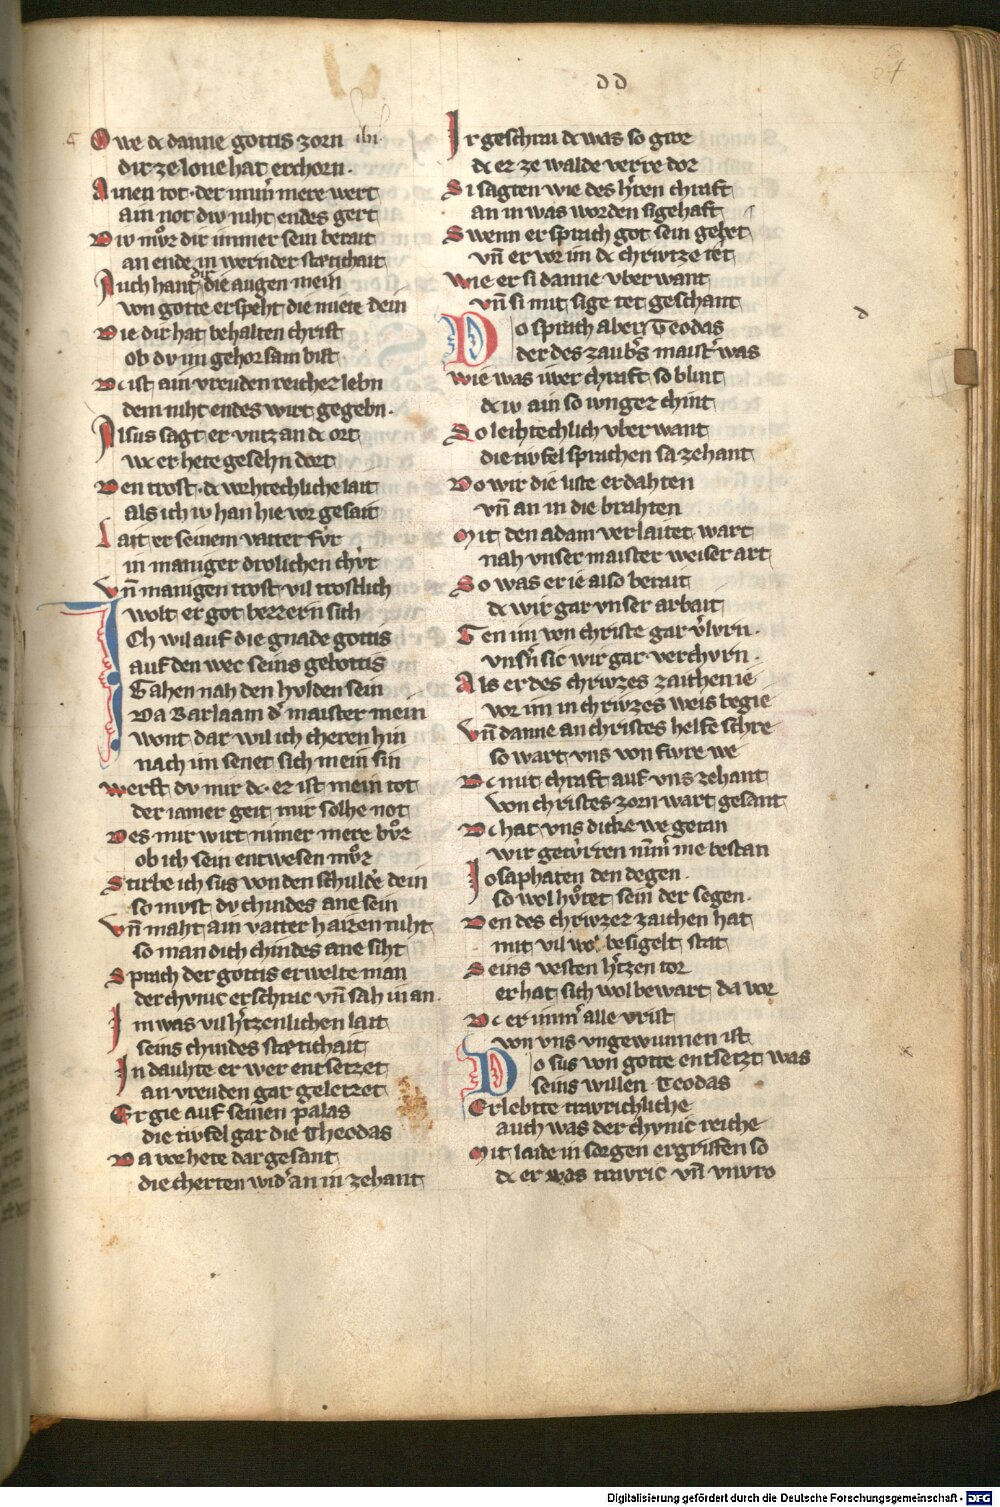 Owe dc danne gottis zorn
dir ze lone hat erchorn.
Ainen tot. der nimm̄ mere wert
ain not div niht endes gert
Div mv̊z dir immer sein berait
an ende in wernder stætichait
Auch hant dir die augen mein
von gotte erspeht die miete dein
Die dir hat behalten christ
ob dv im gehorsam bist
Dc ist ain vreuden reichez lebn
dem niht endes wirt gegebn.
Alsus sagt er vntz an dc ort
wc er hete gesehn dort
Den trost. dc wehtechliche lait
als ich iv han hie vor gesait
Lait er seinem vatter fv̊r
in maniger drolichen chv̊r
Vn̄ manigen trost vil trostlich
wolt er got bezzern sich
Ich wil auf die gnade gottis
auf den wec seins gebottis
Gahen nah den hvlden sein
Da Barlaam d' maister mein
wont dar wil ich cheren hin
nach im senet sich mein sin
Werst dv mir dc. er ist mein tot
der iamer geit mir solhe not
Des mir wirt nimer mere bv̊z
ob ich sein entwesen mv̊z
Stirbe ich sus von den schuldē dein
so mvst dv chindes ane sein
Vn̄ maht ain vatter haizen niht
so man dich chindes ane siht
Sprach der gottis erwelte man
der chvnic erschrac vn̄ sah in an.
Im was vil h'tzenlichen lait
seins chindes stætichait
In dauhte er wer entsetzet
an vreuden gar geletzet
Er gie auf seinen palas
die tivfel gar die Theodas
Da vor hete dar gesant
die cherten wid' an in zehant
dd
Ir geschrai dc was so groz
dc er ze walde verre doz
Si sagten wie des h'ren chraft
an in was worden sigehaft
Swenn er sprach got sein gebet
vn̄ er vor im dc chrivtze tet
Wie er si danne vber want
vn̄ si mit sige tet geschant
Do sprach aber Teodas
der des zaub's maist' was
Wie was iwer chraft so blint
dc iv ain so ivnger chint
So leihtechlich vber want
die tivfel sprachen sa zehant
Do wir die liste erdahten
vn̄ an in die brahten
Mit den adam verlaitet wart
nah vnser maister weiser art
So was er ie also berait
dc wir gar vnser arbait
Gen im von christe gar v'lvrn.
vns'n sic wir gar verchvrn.
Als er des chrivzes zaichen ie
vor im in chrivzes weis begie
Vn̄ danne an christes helfe schre
so wart vns von fivre we
Dc mit chraft auf vns zehant
von christes zorn wart gesant
Dc hat vns dicke we getan
wir getv̊rren nim̄ me bestan
Josaphaten den degen.
so wol hv̊tet sein der segen.
Den des chrivzez zaichen hat
mit vil wol besigelt stat
Seins vesten h'tzen tor
er hat sich wol bewart da vor
Dc er imm' alle vrist
von vns vngewunnen ist
Do sus von gotte entsetzt was
seins willen Teodas
Er lebtte travrichliche
auch was der chvnic reiche
Mit laide in sorgen ergriffen so
dc er was travric vn̄ vnvro
Digitalisierung gefördert durch die Deutsche Forschungsgemeinschaft - DFG